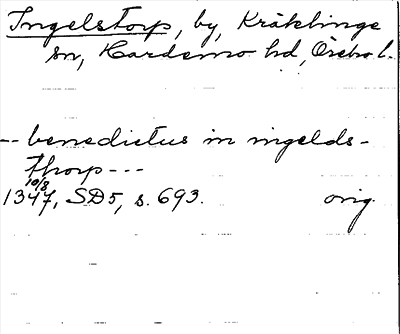 Ingelstorp, by, Kräklinge
sn, Hardemo hd, Örebro l.
-- benedictus in ingelds-
thorp ---
10/8
1347, SD5, s. 693. orig.